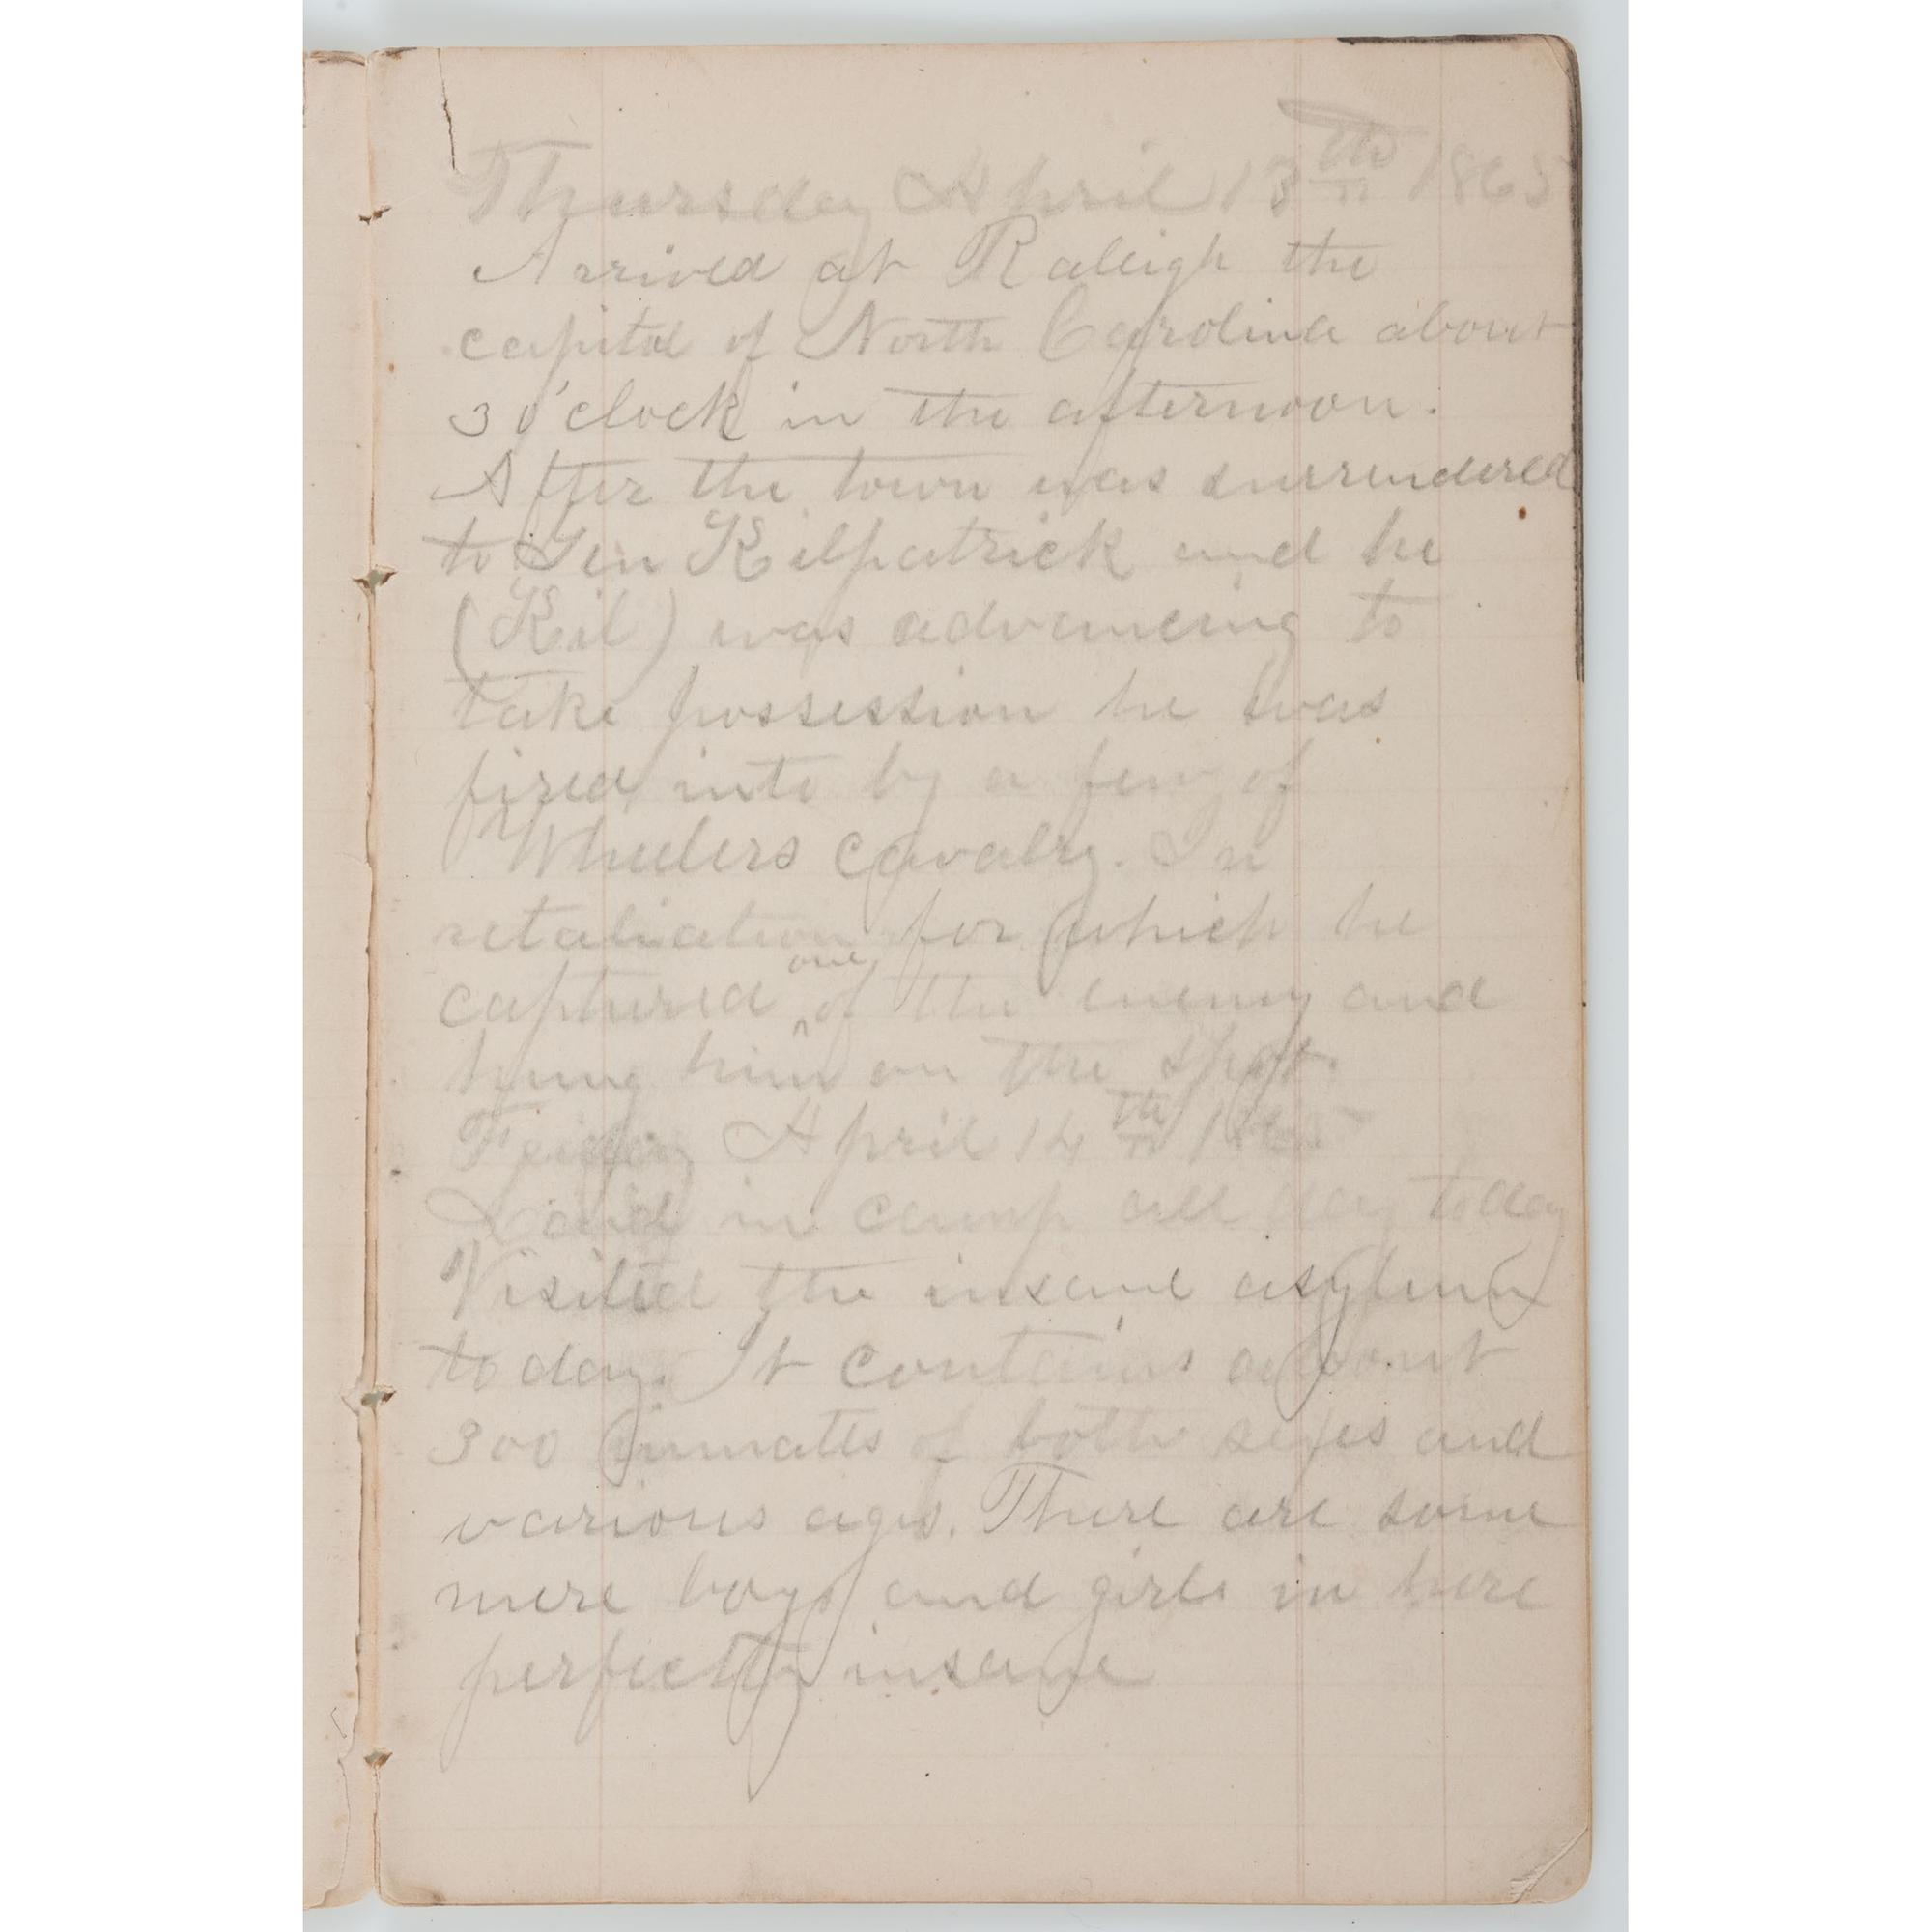 Thursday April 13th 1865
Arrived at Raleigh the
capitol of North Carolina about
3 o'clock in the afternoon.
After the town was surrendered
to Gen Kilpatrick and he
(Kil) was advancing to
take possession he was
fired into by a few of
Wheelers cavalry. In
retaliation for which he
captured one of the enemy and
hung him on the spot.
Friday April 14th 1865
Laid in camp all day today
Visited the insane asylum
to day. It contains about
300 inmates of both sexes and
various ages. There are some
mere boys and girls in here
perfectly insane